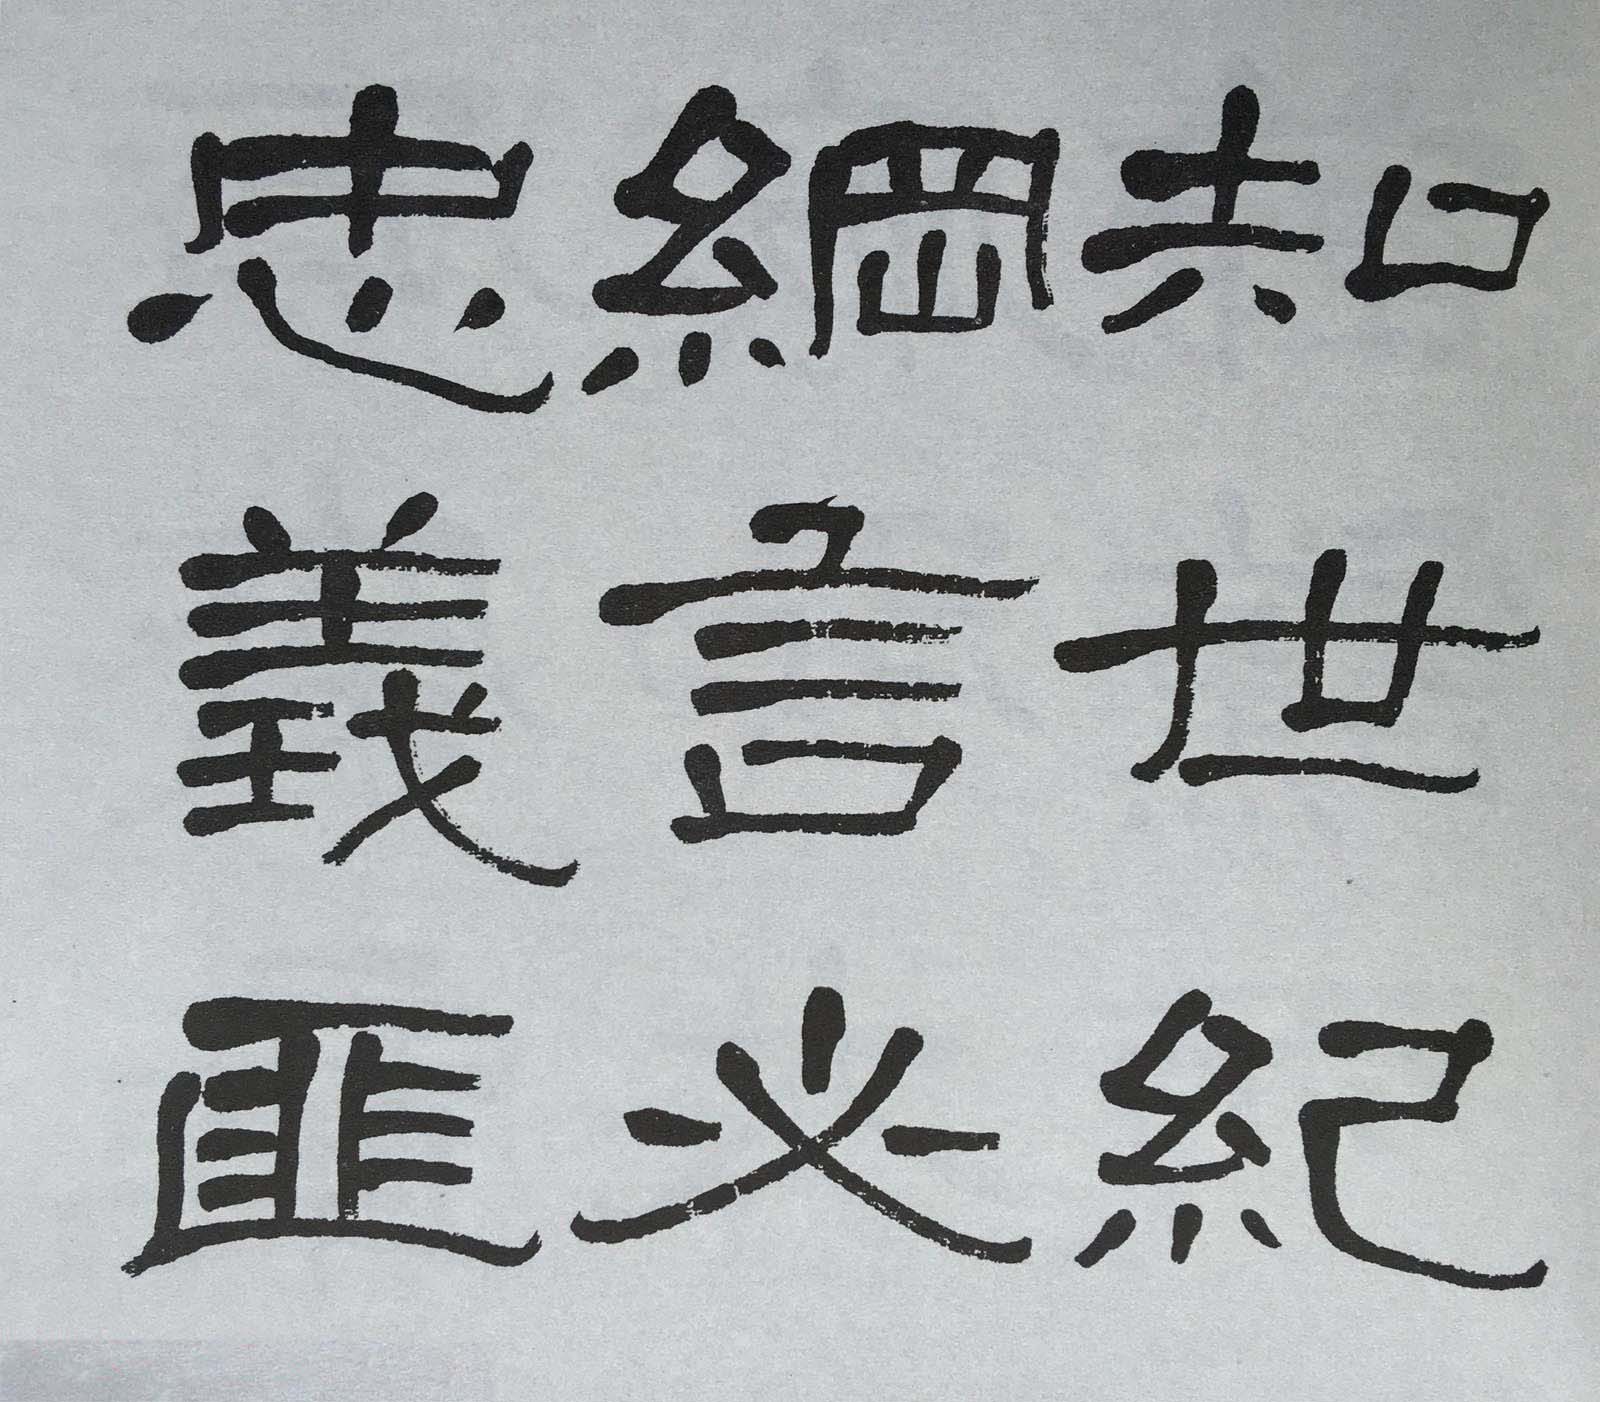 知世紀
綱言必
忠義匪